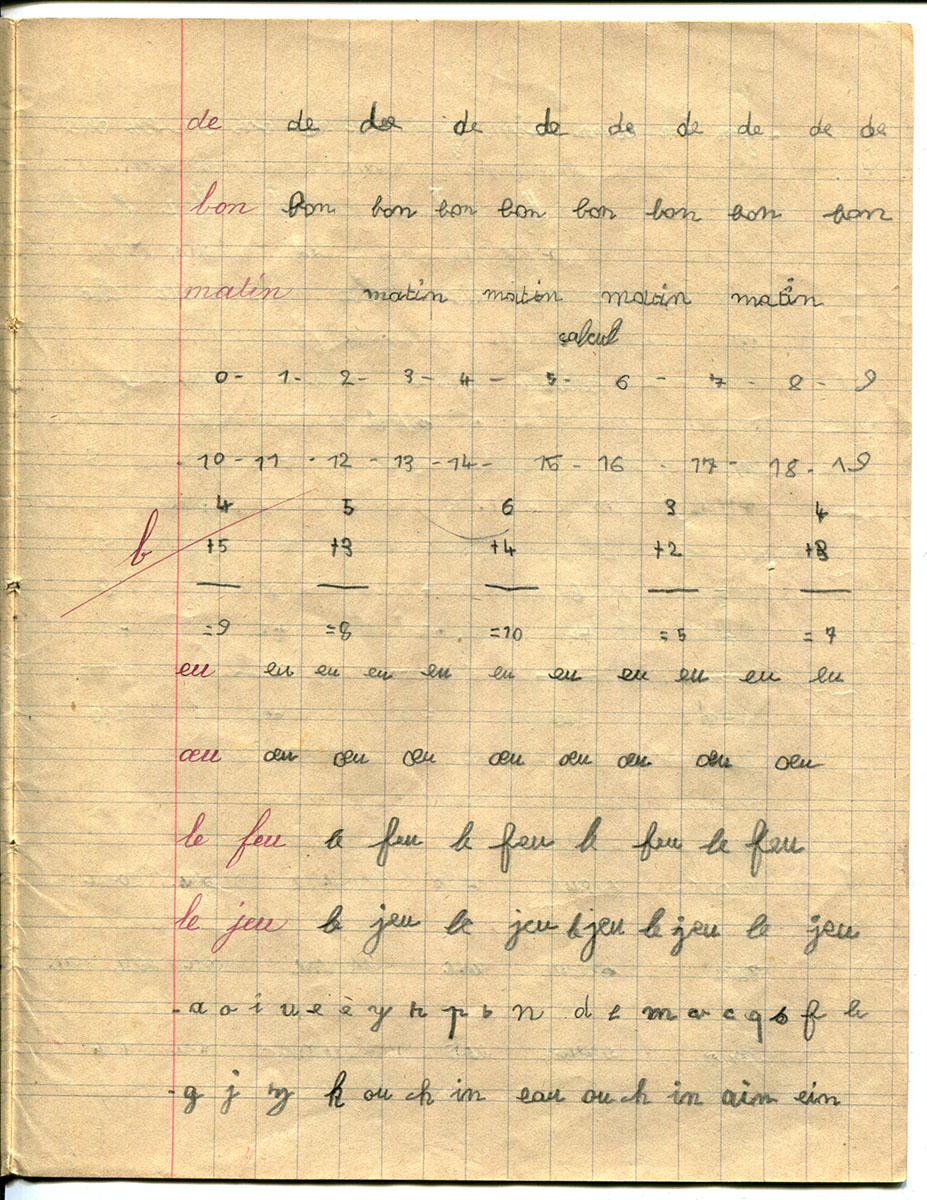 de de de de de de de de de de
bon bon bon bon bon bon bon bon bon
matin matin matin matin matin
calcul
0 - 1 - 2 - 3 - 4 - 5 - 6 - 7 - 8 - 9
10 - 11 - 12 - 13 - 14 - 15 - 16 - 17 - 18 - 19
4 5 6 3 4
b +5 +3 +4 +2 +3
=9 =8 =10 =5 =7
eu eu eu eu eu eu eu eu eu eu eu
œu œu œu œu œu œu œu œu œu
le feu le feu le feu le feu le feu
le jeu le jeu le jeu le jeu le jeu le jeu
a o i u e è y t p n d m c q f
g j k ou ch in eau ou ch in ain ein